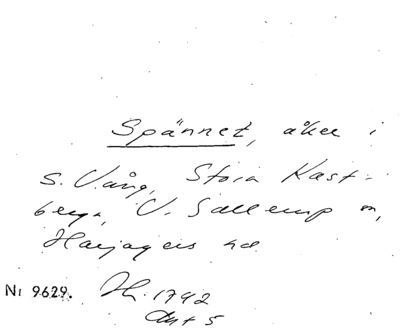 Spännet, åker i
S. Vång, Stora Kast-
berga, V. Sallerup sn,
Harjagers hd
Nr 9629. Jh. 1792
Akt 5